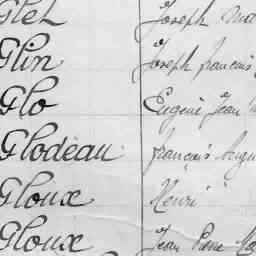 Glet Joseph
Glin Joseph françois
Glo Eugène Jean
Glodéau françois
Gloux Henri
Gloux Jean Pierre